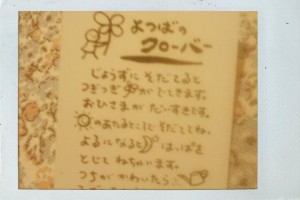 よつばの
クローバー
じょうずに そだてると
つぎつぎ がでてきます。
おひさまが だいすきです。
のあたるところでそだててね。
よるになると はっぱを
とじて ねちゃいます。
つちが かわいたら